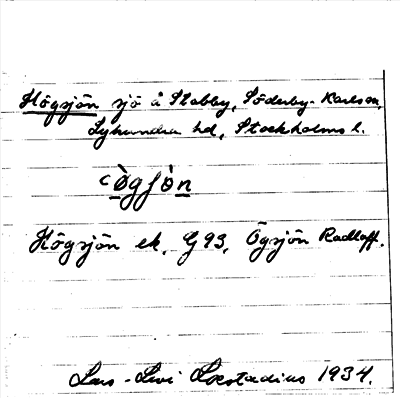 Högsjön sjö å Stabby, Söderby-Karlsson,
Lyhundra hd, Stockholms l.
Högsjön ek. G 93, Ögsjön Radloff.
Lars-Levi Læstadius 1934.